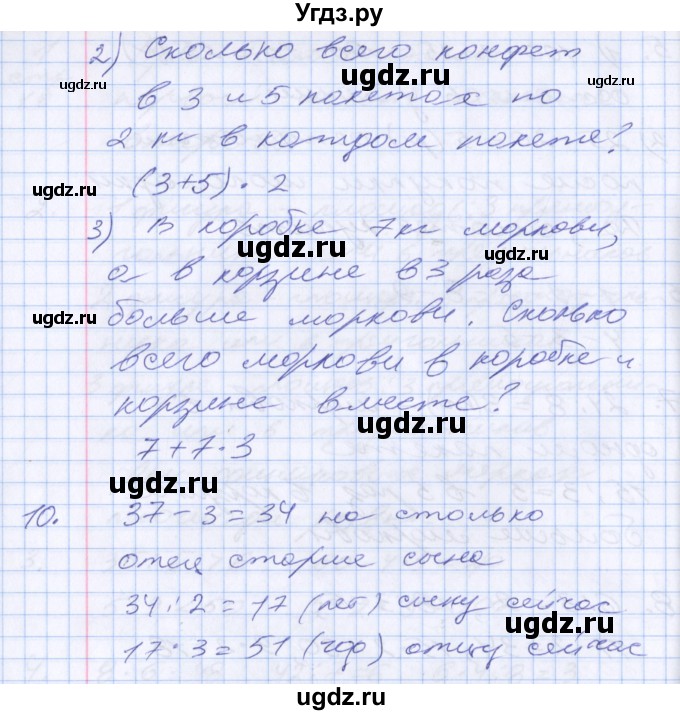 Угдз.ру
2) Сколько всего конфет
в 3 и 5 пакетах по
2 кг в каждом пакете?
(3+5)·2
3) В коробке 7 кг моркови,
а в корзине в 3 раза
больше моркови. Сколько
всего моркови в коробке и
корзине вместе?
7+7·3
10. 37-3=34 на столько
отец старше сына
34:2=17 (лет) сыну сейчас
17·3=51 (год) отцу сейчас
ugdz.ru
ugdz.ru
ugdz.ru
ugdz.ru
ugdz.ru
ugdz.ru
ugdz.ru
ugdz.ru
ugdz.ru
ugdz.ru
ugdz.ru
ugdz.ru
ugdz.ru